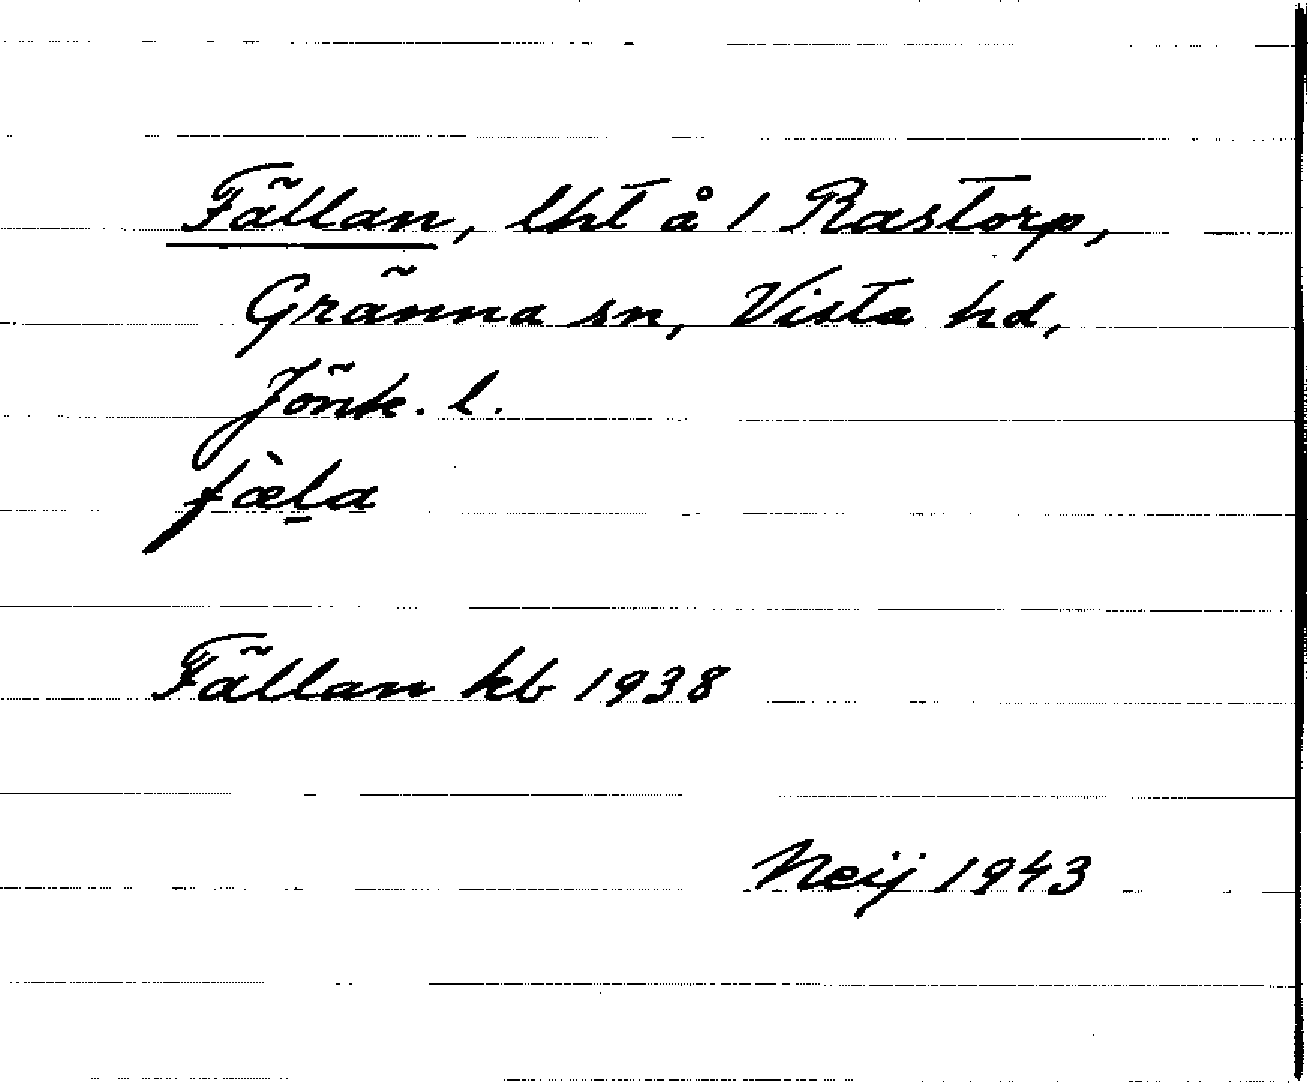 Fällan, lht å 1 Rastorp,
Gränna sn, Vista hd,
Jönk. l.
fæ̀l̠a
Fällan kb 1938
Neij 1943